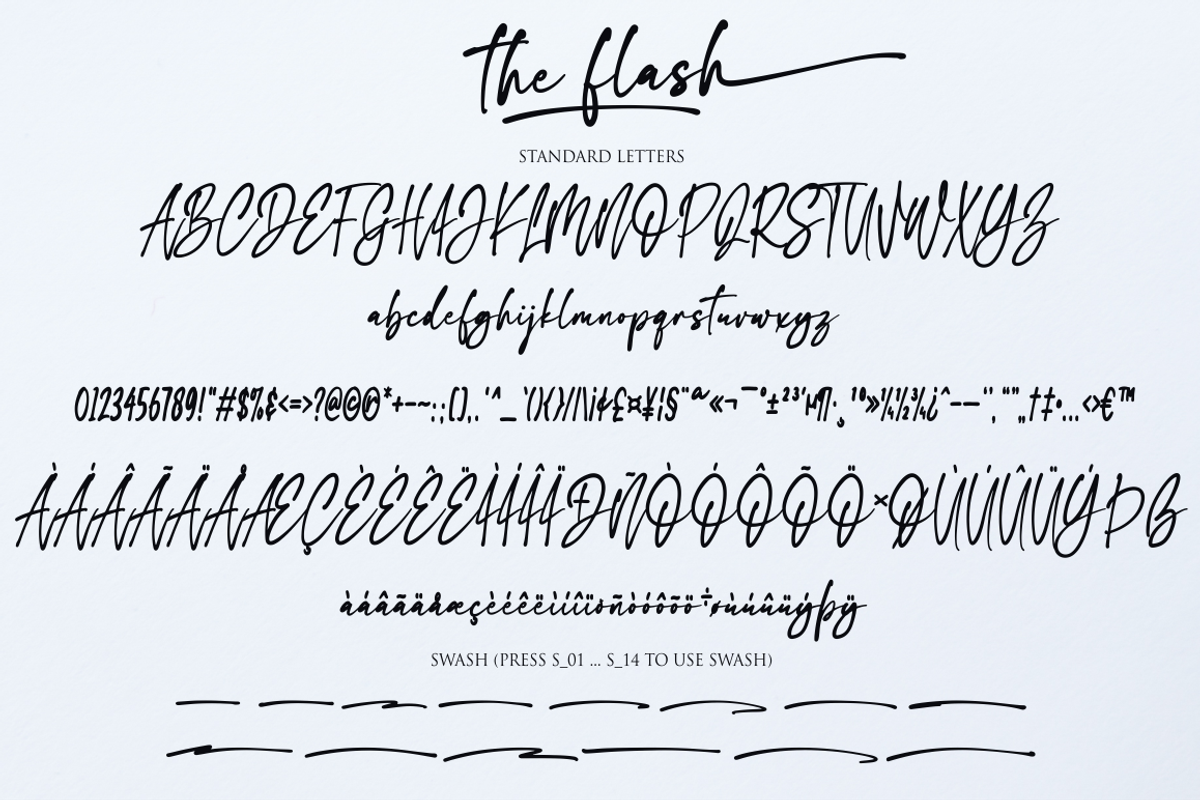 the flash
STANDARD LETTERS
ABCDEFGHIJKLMNOPQRSTUVWXYZ
abcdefghijklmnopqrstuvwxyz
0123456789!"#$%&<=>?@©®*+-~:;[],.'^_`(){}/|\¡¢£¤¥¦§¨ª«¬¯°±²³´µ¶·¸¹º»¼½¾¿ˆ–—‘’‚“”„†‡•…‹›€™
ÀÁÂÃÄÅÆÇÈÉÊËÌÍÎÏÐÑÒÓÔÕÖ×ØÙÚÛÜÝÞß
àáâãäåæçèéêëìíîïðñòóôõö÷øùúûüýþÿ
SWASH (PRESS S_01 ... S_14 TO USE SWASH)